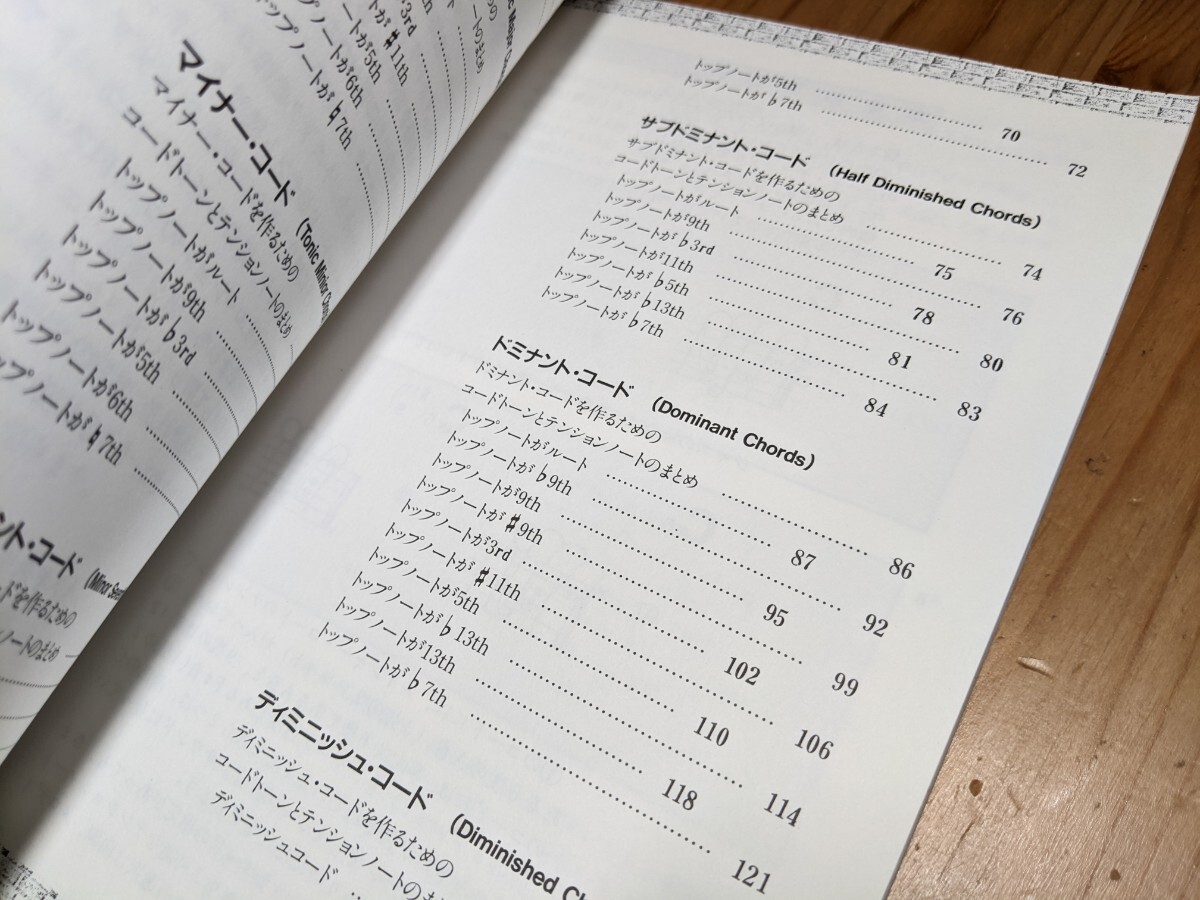 ic Major
のまとめ
3rd
ノートが♯11th
トップノートが5th
トップノートが6th
トップノートが♮7th
マイナー・コード (Tonic Minor
マイナー・コードを作るための
コードトーンとテンションノートのまとめ
トップノートがルート
トップノートが9th
トップノートが♭3rd
トップノートが5th
トップノートが6th
ップノートが♮7th
ント・コード (Minor
ードを作るための
ノートのまとめ
トップノートが5th 70
トップノートが♭7th 72
サブドミナント・コード (Half Diminished Chords)
サブドミナント・コードを作るための
コードトーンとテンションノートのまとめ 74
トップノートがルート 75
トップノートが9th 76
トップノートが♭3rd 78
トップノートが11th 80
トップノートが♭5th 81
トップノートが♭13th 83
トップノートが♭7th 84
ドミナント・コード (Dominant Chords)
ドミナント・コードを作るための
コードトーンとテンションノートのまとめ 86
トップノートがルート 87
トップノートが♭9th 92
トップノートが9th 95
トップノートが♯9th 99
トップノートが3rd 102
トップノートが♯11th 106
トップノートが5th 110
トップノートが♭13th 114
トップノートが13th 118
トップノートが♭7th 121
ディミニッシュ・コード (Diminished Ch
ディミニッシュ・コードを作るための
コードトーンとテンションノートのま
ディミニッシュコード